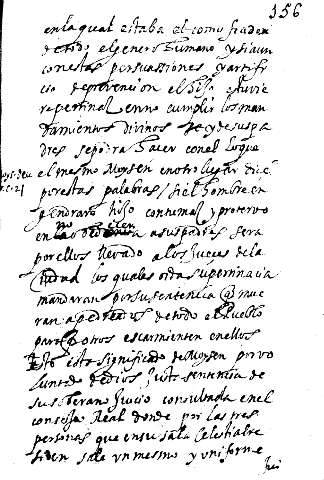 156
en la qual estaba el como fiador
de todo el genero humano y si aun
con estas persuassiones y artifi
cio de prevencion el hijo estuvie
re pertinaz en no cumplir los man
damientos divinos y de sus pa
dres se podra hacer con el lo que
el mesmo Moysen en otro lugar dice
por estas palabras / si el hombre en
gendrare hijo contumaz y protervo
en la a sus padres sera
por ellos llevado a los jueces de la
ciudad los quales oida su pertinacia
mandaran por su sentencia que mue
ra apedreado de todo el Pueblo
para que otros escarmienten en ellos
esto esta significado de Moysen por vo
luntad de dios justa sentencia de
su soberano Juicio consultada en el
consejo Real donde por las tres
personas que en su sala Celestial re
siden sale un mesmo y uniforme
Jui